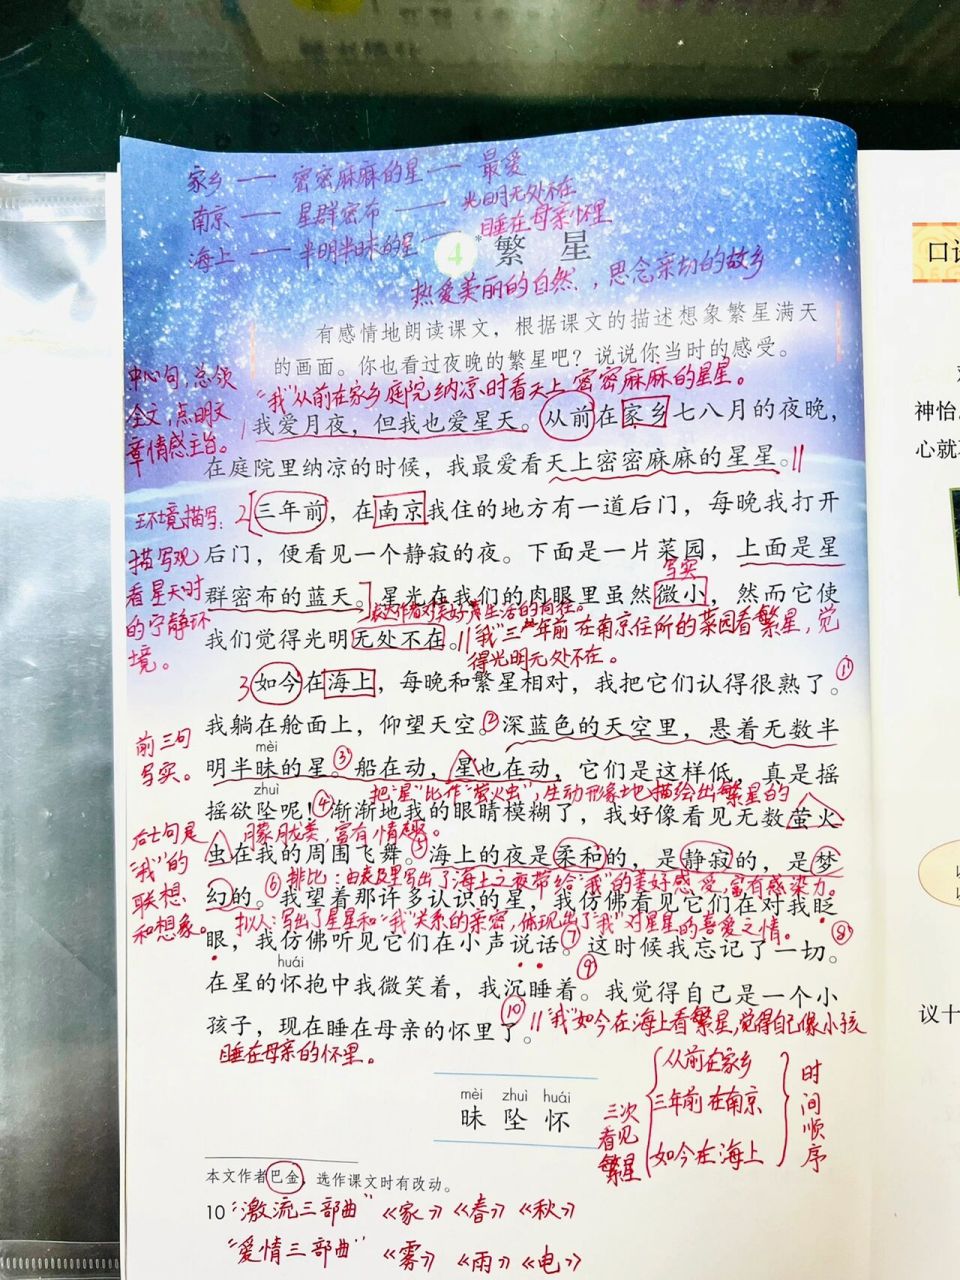 家乡 — 密密麻麻的星 — 最爱
南京 — 星群密布 — 光明无处不在
睡在母亲怀里
海上 — 半明半昧的星
4* 繁 星
热爱美丽的自然，思念亲切的故乡
有感情地朗读课文，根据课文的描述想象繁星满天
的画面。你也看过夜晚的繁星吧？说说你当时的感受。
中心句，总领
全文，点明文
章情感主旨。
“我”从前在家乡庭院纳凉时看天上密密麻麻的星星。
1 我爱月夜，但我也爱星天。从前在家乡七八月的夜晚，
在庭院里纳凉的时候，我最爱看天上密密麻麻的星星。
环境描写：
描写观
看星天时
的宁静环
境。
2 三年前，在南京我住的地方有一道后门，每晚我打开
后门，便看见一个静寂的夜。下面是一片菜园，上面是星
写实
群密布的蓝天。星光在我们的肉眼里虽然微小，然而它使
表达作者对美好生活的向往。
我们觉得光明无处不在。
“我”三年前在南京住所的菜园看繁星，觉
得光明无处不在。
3 如今在海上，每晚和繁星相对，我把它们认得很熟了。①
我躺在舱面上，仰望天空。②深蓝色的天空里，悬着无数半
前三句
写实。
mèi
明半昧的星。③船在动，星也在动，它们是这样低，真是摇
zhuì
把“星”比作“萤火虫”，生动形象地描绘出繁星的
摇欲坠呢！④渐渐地我的眼睛模糊了，我好像看见无数萤火
朦胧美，富有情趣。
后七句是
“我”的
联想
和想象。
虫在我的周围飞舞。⑤海上的夜是柔和的，是静寂的，是梦
排比：由表及里写出了海上之夜带给“我”的美好感受，富有感染力。
幻的。⑥我望着那许多认识的星，我仿佛看见它们在对我眨
拟人：写出了星星和“我”关系的亲密，体现出了“我”对星星的喜爱之情。
眼，我仿佛听见它们在小声说话。⑦这时候我忘记了一切。⑧
huái
在星的怀抱中我微笑着，我沉睡着。⑨我觉得自己是一个小
孩子，现在睡在母亲的怀里了。⑩
“我”如今在海上看繁星，觉得自己像小孩
睡在母亲的怀里。
mèi zhuì huái
昧 坠 怀
三次
看见
繁星
从前在家乡
三年前在南京
如今在海上
时
间
顺
序
本文作者巴金，选作课文时有改动。
10
“激流三部曲” 《家》《春》《秋》
“爱情三部曲” 《雾》《雨》《电》
口语
神怡
心就
议十